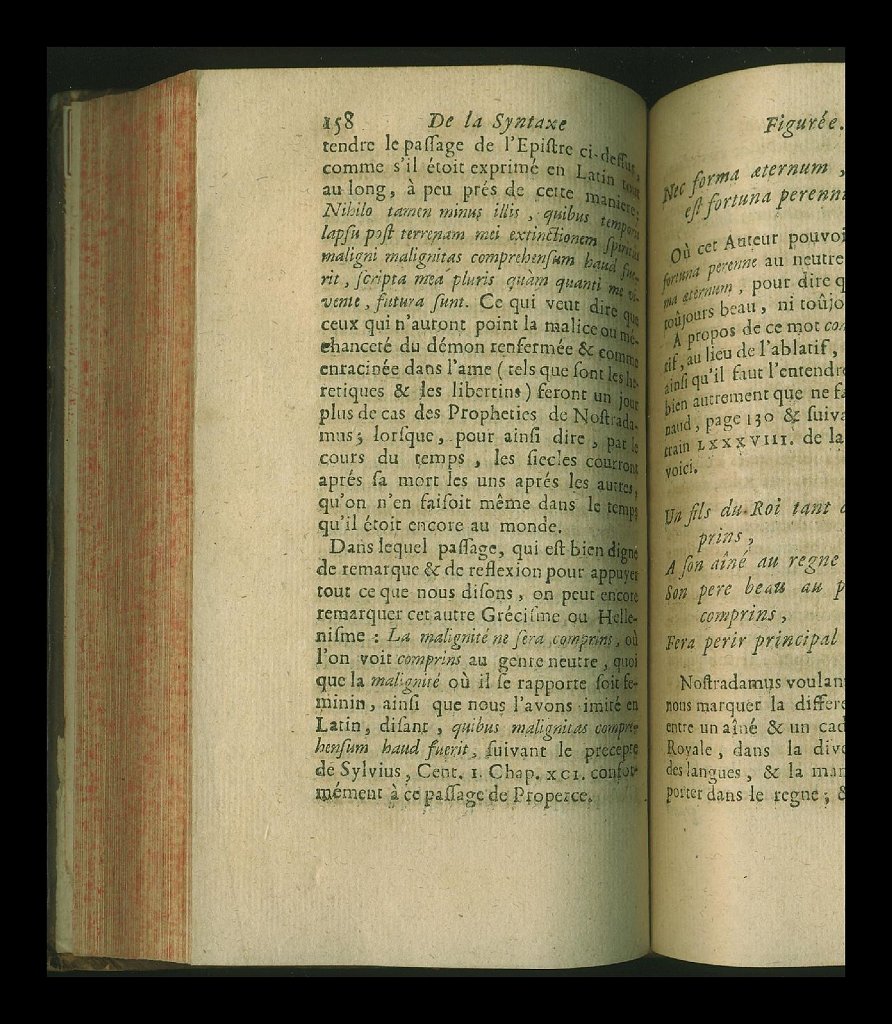 158 De la Syntaxe
tendre le paſſage de l'Epiſtre ci-deſſus,
comme s'il étoit exprimé en Latin tout
au long, à peu prés de cette maniere:
Nihilo tamen minus illis, quibus temporis
lapſu poſt terrenam mei extinctionem ſpiritus
maligni malignitas comprehenſum haud fue-
rit, ſcripta meá pluris quàm quanti me vi-
vente, futura ſunt. Ce qui veut dire que
ceux qui n'auront point la malice ou mé-
chanceté du démon renfermée & comme
enracinée dans l'ame (tels que ſont les he-
retiques & les libertins) feront un jour
plus de cas des Propheties de Noſtrada-
mus; lorſque, pour ainſi dire, par le
cours du temps, les ſiecles courront
aprés ſa mort les uns aprés les autres,
qu'on n'en faiſoit même dans le temps
qu'il étoit encore au monde.
Dans lequel paſſage, qui eſt bien digne
de remarque & de reflexion pour appuyer
tout ce que nous diſons, on peut encore
remarquer cet autre Gréciſme ou Helle-
niſme: La malignité ne ſera comprins, où
l'on voit comprins au genre neutre, quoi
que la malignité où il ſe rapporte ſoit fe-
minin, ainſi que nous l'avons imité en
Latin, diſant, quibus malignitas compre-
henſum haud fuerit, ſuivant le precepte
de Sylvius, Cent. 1. Chap. XCI. confor-
mément à ce paſſage de Properce.
Figurée.
Nec forma æternum,
eſt fortuna perenni
Où cet Auteur pouvoi
fortuna perenne au neutre
ma æternum, pour dire q
toûjours beau, ni toûjo
A propos de ce mot com
tif, au lieu de l'ablatif,
ainſi qu'il faut l'entendre
bien autrement que ne fa
naud, page 130 & ſuiva
train LXXXVIII. de la
voici.
Un fils du Roi tant
prins,
A ſon aîné au regne
Son pere beau au p
comprins,
Fera perir principal
Noſtradamus voulant
nous marquer la differe
entre un aîné & un cad
Royale, dans la dive
des langues, & la man
porter dans le regne; &